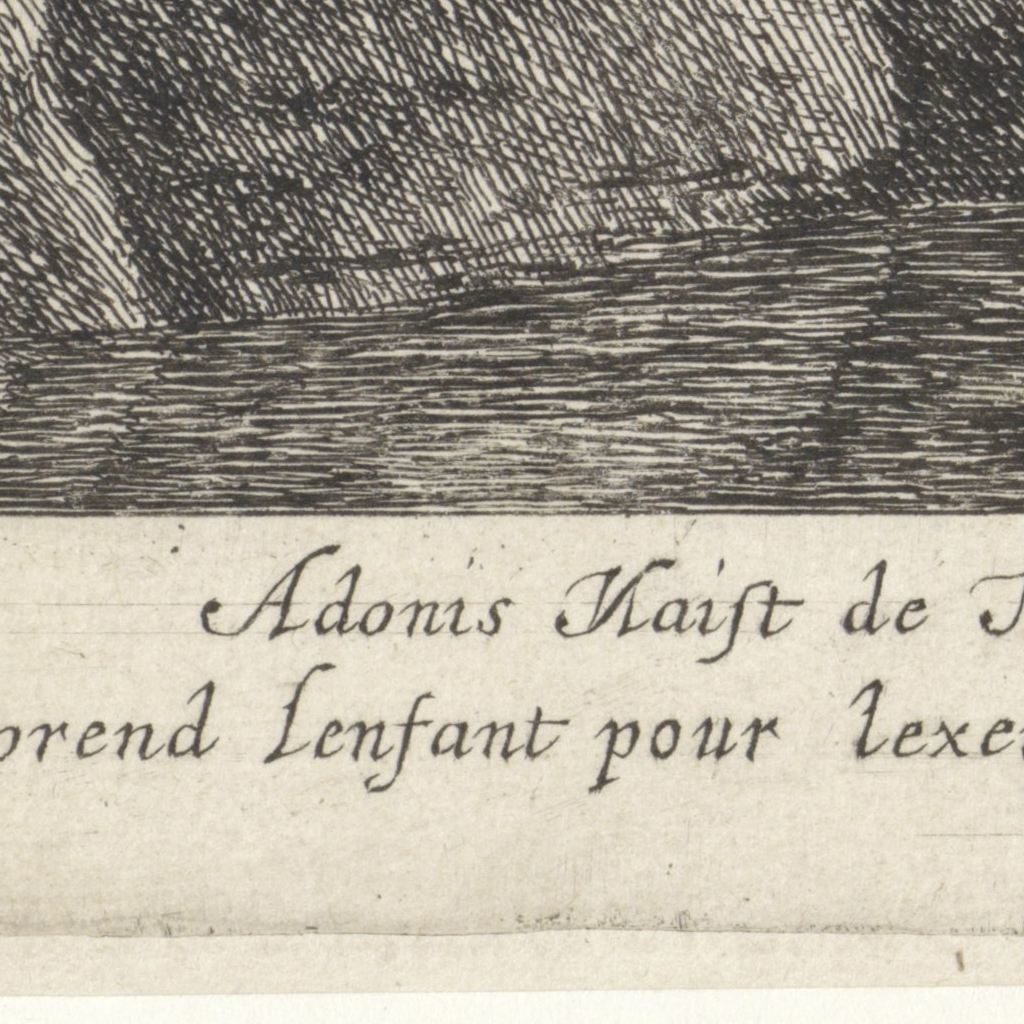 Adonis Naiſt de
prend Lenfant pour lexe